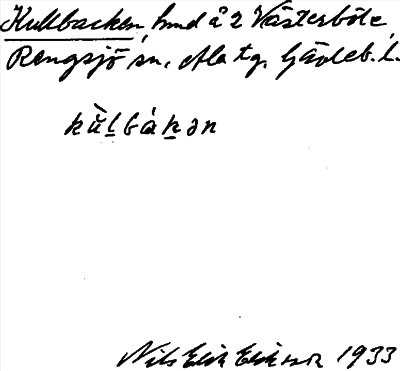 Kullbacken, hmd å 2 Västerböle
Rengsjö sn. Ala tg. Gävleb. l.
kùl̲bákən
Nils Erik Eriksson 1933